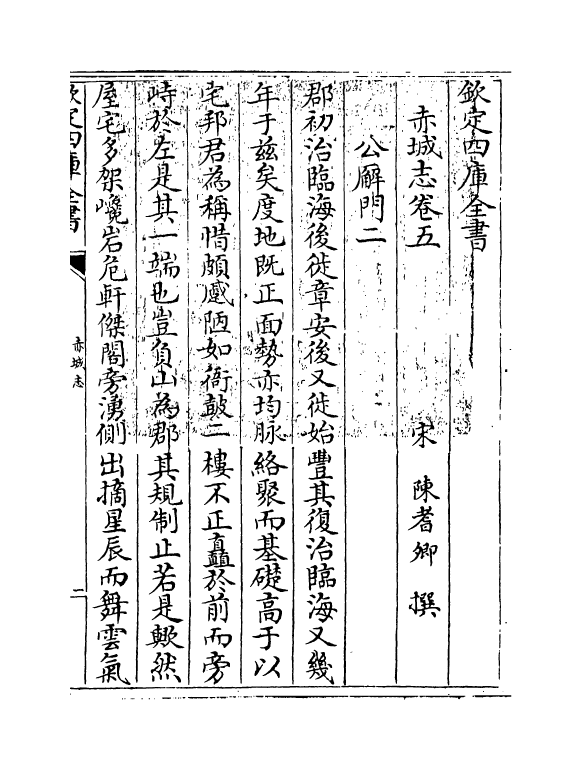 欽定四庫全書
赤城志卷五
宋　陳耆卿　撰
公廨門二
郡初治臨海後徙章安後又徙始豐其復治臨海又幾
年于兹矣度地既正面勢亦均脉絡聚而基礎高于以
宅邦君為稱惜頗蹙陋如衙鼓二樓不正矗於前而旁
峙於左是其一端也豈負山為郡其規制止若是歟然
屋宅多架巉岩危軒傑閣旁湧側出摘星辰而舞雲氣
欽定四庫全書
赤城志
二